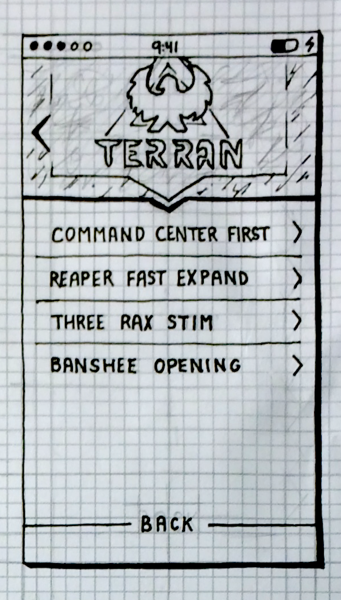 9:41
TERRAN
COMMAND CENTER FIRST
REAPER FAST EXPAND
THREE RAX STIM
BANSHEE OPENING
BACK